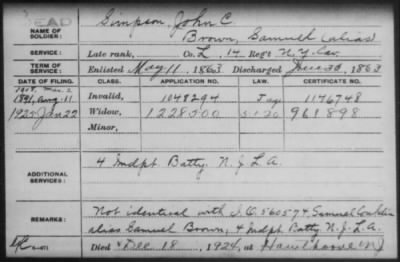 DEAD
NAME OF SOLDIER: Simpson, John C.
Brown, Samuel (alias)
SERVICE: Late rank, Co. L, 14 Reg't N.Y. Cav.
TERM OF SERVICE: Enlisted May 11, 1863 Discharged June 30, 1863
DATE OF FILING. CLASS. APPLICATION NO. LAW. CERTIFICATE NO.
1891, Aug. 11 Invalid, 1048294 1176748
1925 Jan 22 Widow, 1228300 961898
Minor,
ADDITIONAL SERVICES: 4 Indpt Batty, N.J.L.A.
REMARKS: Not identical with I.O. 560574 Samuel
alias Samuel Brown, 4 Indpt Batty N.J.L.A.
Died Dec 18, 1924, at N.J.